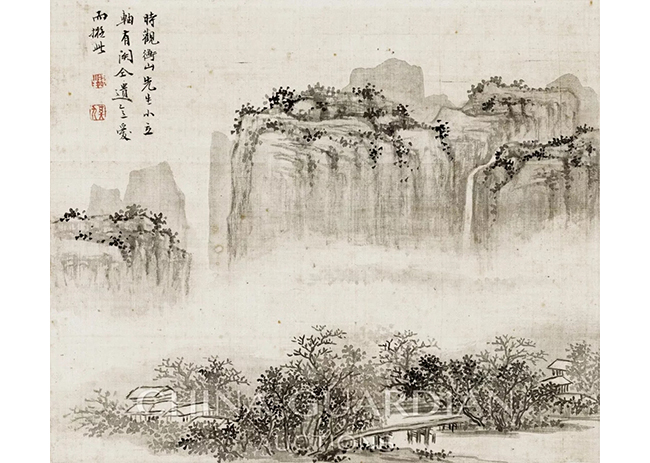 時觀衡山先生小立
軸有関仝遺意愛
而擬此
CHINA GUARDIAN
AUCTIONS